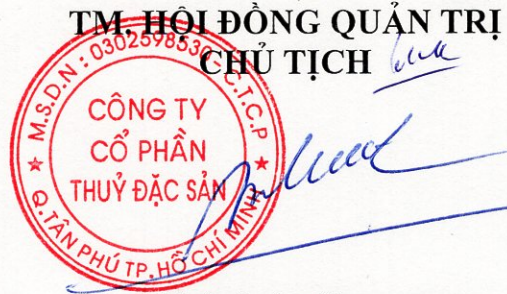 TM. HỘI ĐỒNG QUẢN TRỊ
CHỦ TỊCH
M.S.D.N: 0302598530-C.T.C.P
CÔNG TY
CỔ PHẦN
THUỶ ĐẶC SẢN
Q.TÂN PHÚ TP.HỒ CHÍ MINH